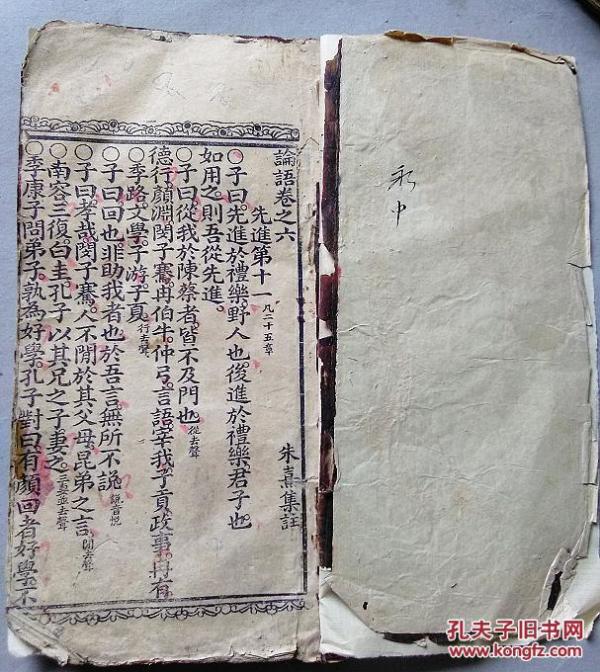 論語卷之六
朱熹集註
先進第十一 凡二十五章
○子曰先進於禮樂野人也後進於禮樂君子也
如用之則吾從先進
○子曰從我於陳蔡者皆不及門也 從去聲
德行顏淵閔子騫冉伯牛仲弓言語宰我子貢政事冉有
季路文學子游子夏 行去聲
○子曰回也非助我者也於吾言無所不說 說音悅
○子曰孝哉閔子騫人不閒於其父母昆弟之言 閒去聲
○南容三復白圭孔子以其兄之子妻之 三妻並去聲
○季康子問弟子孰為好學孔子對曰有顏回者好學不
孔夫子旧书网
www.kongfz.com